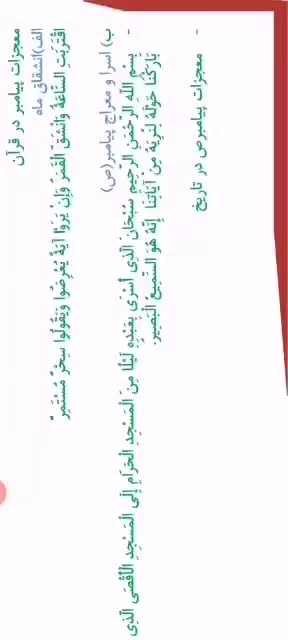 معجزات پیامبر در قرآن
الف)انشقاق ماه
اقْتَرَبَتِ السَّاعَةُ وَانْشَقَّ الْقَمَرُ وَإِنْ يَرَوْا آيَةً يُعْرِضُوا وَيَقُولُوا سِحْرٌ مُسْتَمِرٌّ
ب) اسرا و معراج پیامبر(ص)
- بِسْمِ اللَّهِ الرَّحْمَنِ الرَّحِيمِ سُبْحَانَ الَّذِي أَسْرَى بِعَبْدِهِ لَيْلًا مِنَ الْمَسْجِدِ الْحَرَامِ إِلَى الْمَسْجِدِ الْأَقْصَى الَّذِي
بَارَكْنَا حَوْلَهُ لِنُرِيَهُ مِنْ آيَاتِنَا إِنَّهُ هُوَ السَّمِيعُ الْبَصِيرُ
- معجزات پیامبرص در تاریخ